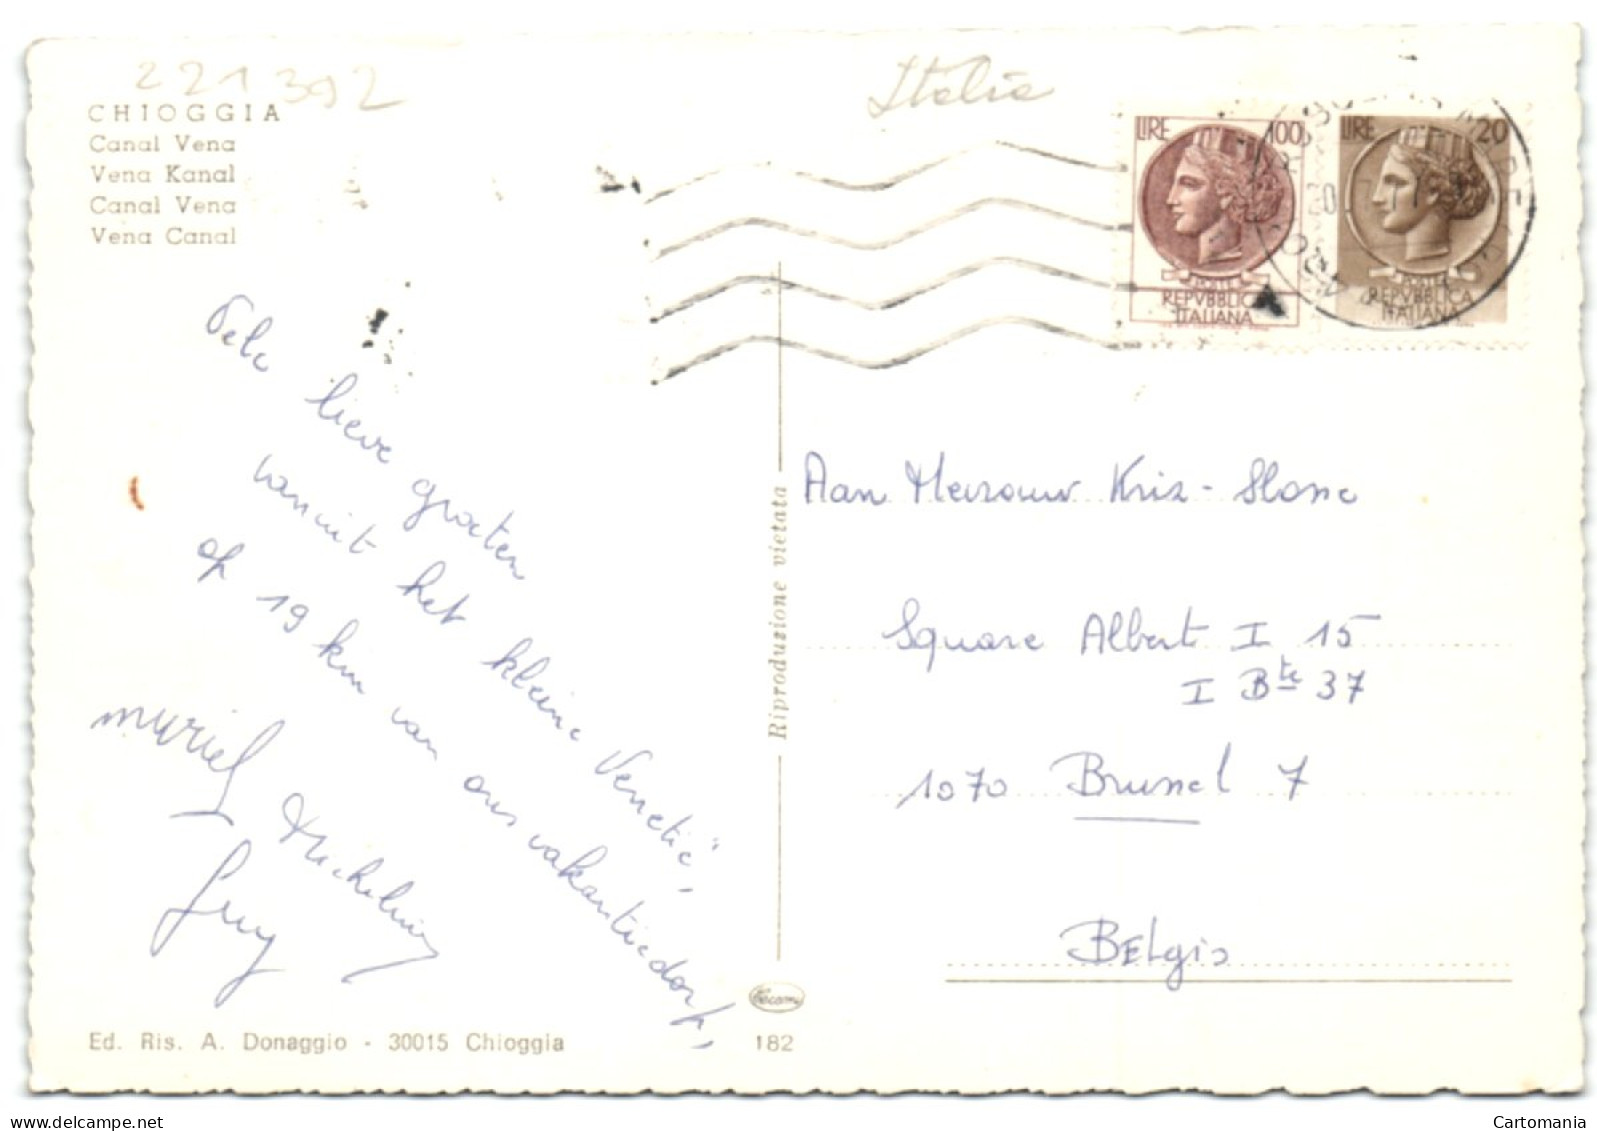 221392
CHIOGGIA
Canal Vena
Vena Kanal
Canal Vena
Vena Canal
Italia
LIRE 100
REPVBBLICA
ITALIANA
LIRE 20
POSTE
REPVBBLICA
ITALIANA
Vele lieve groeten
vanuit het kleine Venetië",
op 19 km van ons vakantiedorp,
muriel
Guy
Riproduzione vietata
Aan Mevrouw Kriz-
Square Albert I 15
I Bte 37
1070 Brussel 7
BElgïo
Ed. Ris. A. Donaggio - 30015 Chioggia
182
Cartomania